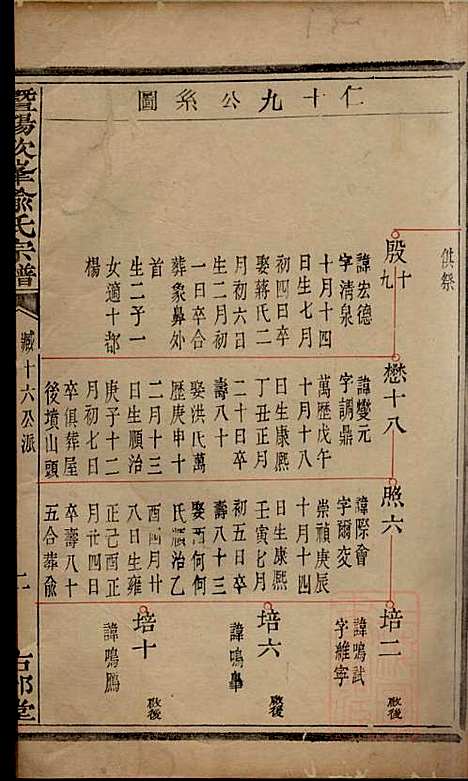 仁十九公系圖
供祭
殷十九
諱宏德
字清泉
十月十四
日生七月
初四日卒
娶蔣氏二
月初六日
生二月初
一日卒合
葬象鼻外
首
生二子一
女適十都
楊
懋十八
諱燮元
字調鼎
萬歷戊午
十月十八
日生康熙
丁丑正月
二十日卒
壽八十
娶洪氏萬
歷庚申十
二月十三
日生順治
庚子十二
月初七日
卒俱葬屋
後墳山頭
照六
諱際會
字爾交
崇禎庚辰
十月十四
日生康熙
壬寅七月
初五日卒
壽八十三
娶河何
氏順治乙
酉四月廿
八日生雍
正己酉正
月廿四日
卒壽八十
五合葬俞
培二
諱鳴武
字維寧
啟後
培六
諱鳴
啟後
培十
諱鳴鴈
啟後
暨陽次峯俞氏宗譜
臧十六公派